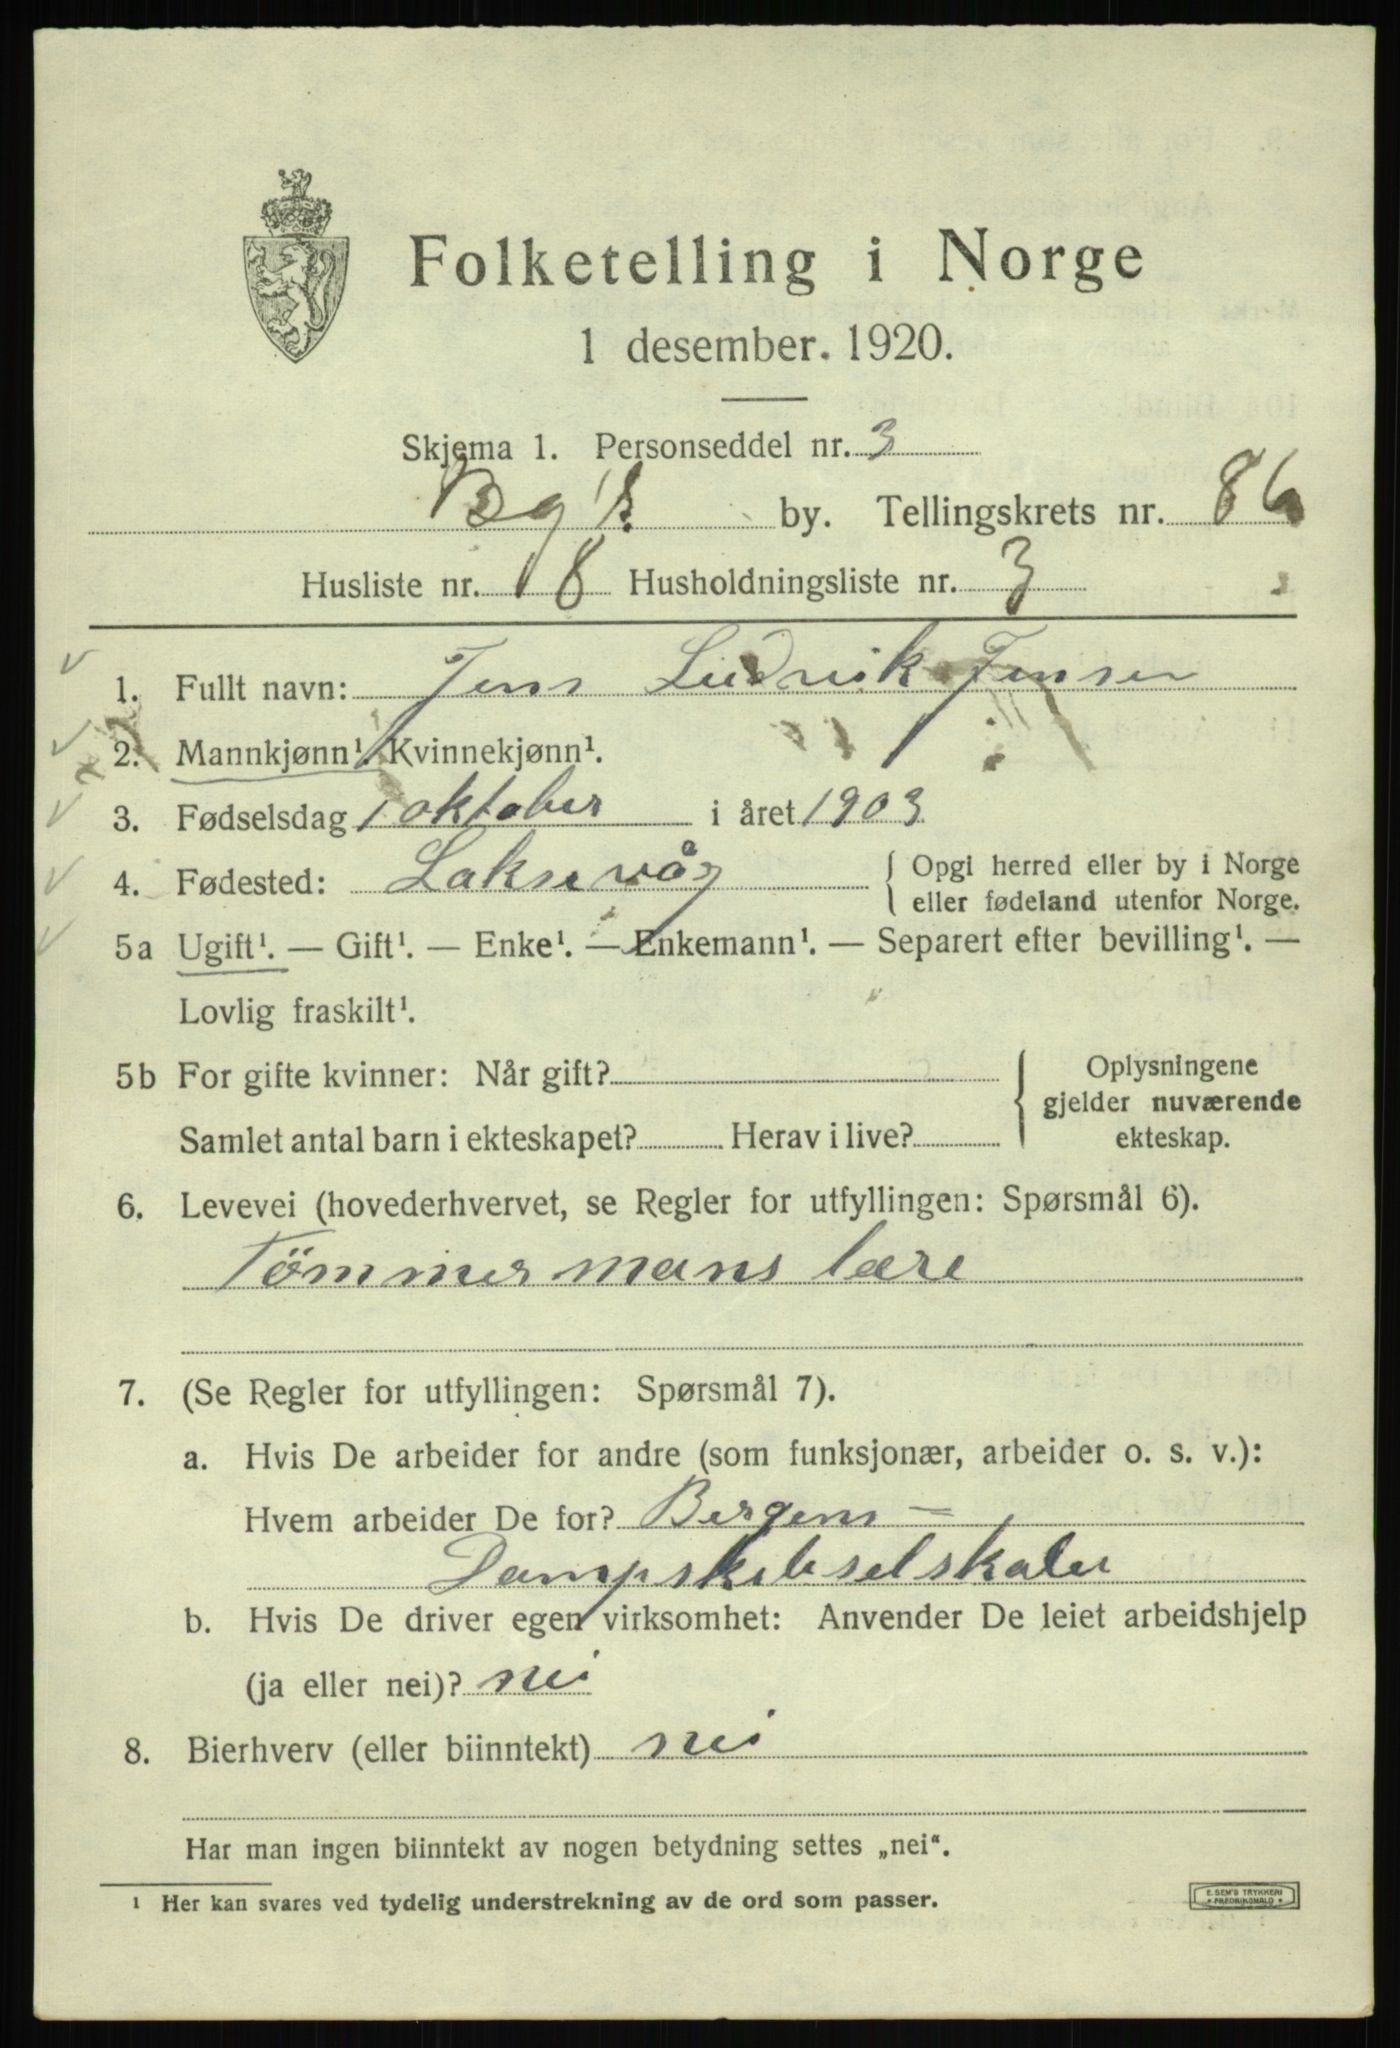 Folketelling i Norge
1 desember. 1920.
Skjema 1. Personseddel nr. 3
by. Tellingskrets nr. 86
Husliste nr. 18 Husholdningsliste nr. 3
1. Fullt navn: Jens Ludvik Jensen
2. Mannkjønn¹. Kvinnekjønn¹.
3. Fødselsdag 1 oktober i året 1903
4. Fødested: Laksevåg { Opgi herred eller by i Norge
eller fødeland utenfor Norge.
5a Ugift¹. — Gift¹. — Enke¹. — Enkemann¹. — Separert efter bevilling¹. —
Lovlig fraskilt¹.
5b For gifte kvinner: Når gift?
Samlet antal barn i ekteskapet? Herav i live?
Oplysningene
gjelder nuværende
ekteskap.
6. Levevei (hovederhvervet, se Regler for utfyllingen: Spørsmål 6).
Tömmermans lære
7. (Se Regler for utfyllingen: Spørsmål 7).
a. Hvis De arbeider for andre (som funksjonær, arbeider o. s. v.):
Hvem arbeider De for? Bergens-
b. Hvis De driver egen virksomhet: Anvender De leiet arbeidshjelp
(ja eller nei)? nei
8. Bierhverv (eller biinntekt) nei
Har man ingen biinntekt av nogen betydning settes „nei“.
¹ Her kan svares ved tydelig understrekning av de ord som passer.
E. SEM'S TRYKKERI
FREDRIKSHALD